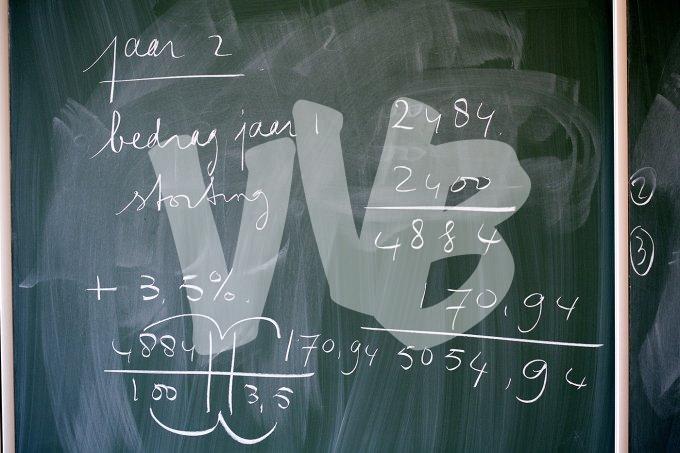 jaar 2
bedrag jaar 1 2484.
storting 2400
4884
+ 3,5%. 170,94
4884 170,94 5054,94
100 3,5
2
3
VVB